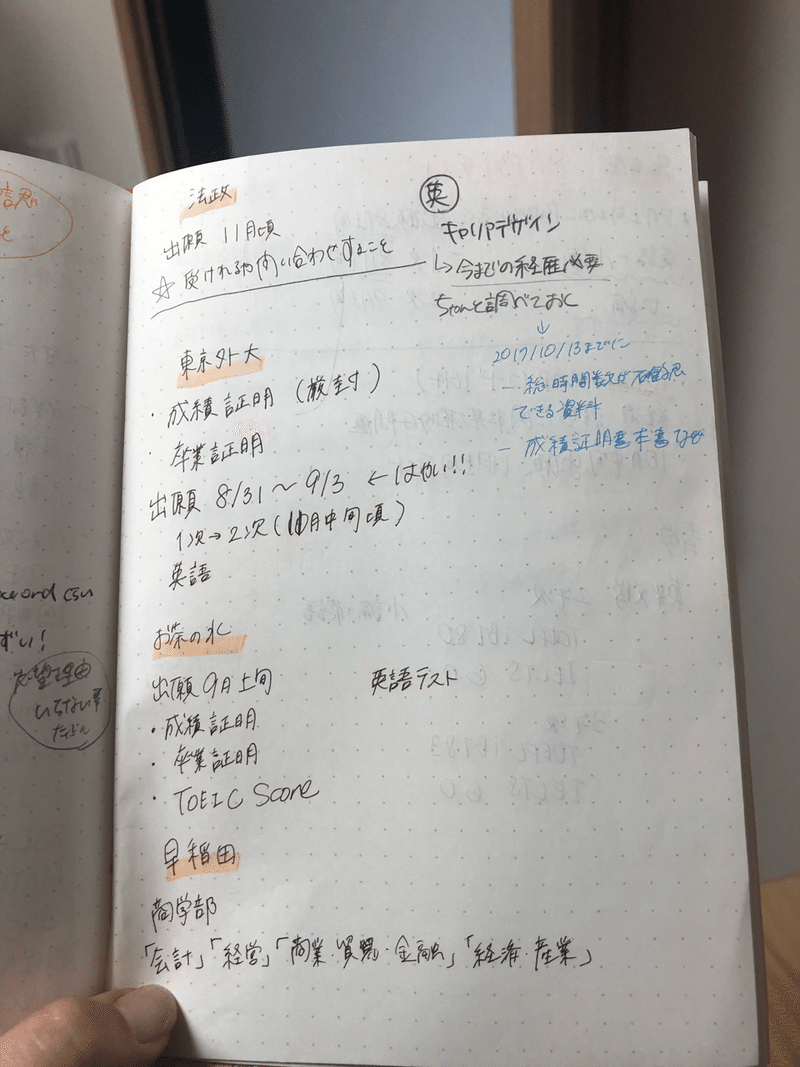 法政
出願 11月頃
☆ 受けれるか問い合わせすること
英
キャリアデザイン
↳ 今までの経歴必要
ちゃんと調べておく
↓
2017/10/13までに
- 総時間数が確認
できる資料
- 成績証明書本書など
東京外大
・成績証明 (厳封)
・卒業証明
出願 8/31 ~ 9/3 ← はやい!!
1次→2次(10月中旬頃)
英語
お茶の水
出願9月上旬 英語テスト
・成績証明
・卒業証明
・TOEIC Score
早稲田
商学部
「会計」「経営」「商業・貿易・金融」「経済・産業」
志望理由
いらない